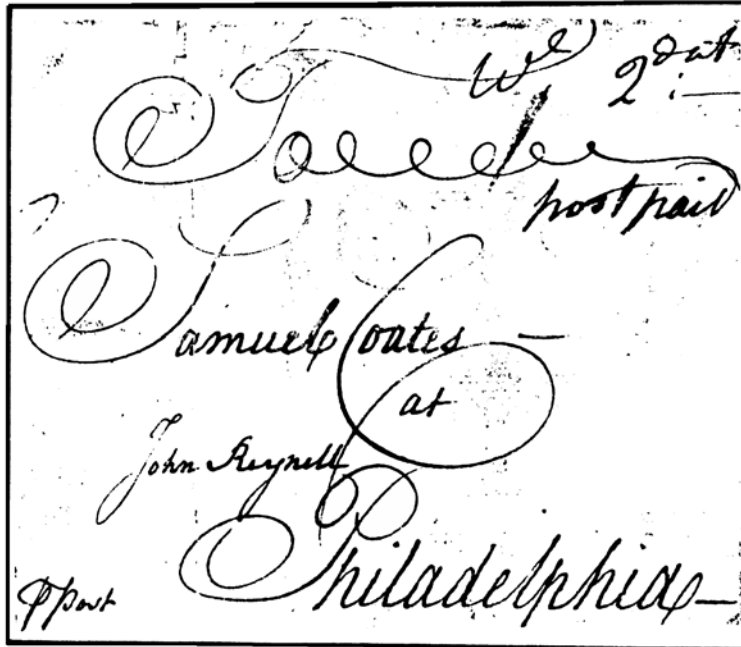 Wt 2 dwt
To
post paid
Samuel Coates —
at
John Reynell
Philadelphia —
⅌ post